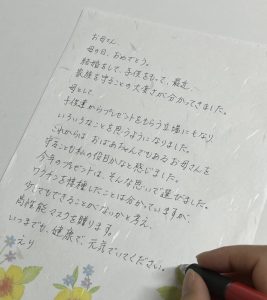 お母さん
母の日、おめでとう。
結婚をして、子供をもって、最近、
家族を守ることの大変さが分かってきました。
母として
子供達からプレゼントをもらう立場にもなり
いろいろなことを思うようになりました。
これからは、おばあちゃんでもあるお母さんを
守ることも私の役目かなと感じました。
今年のプレゼントは、そんな思いで選びました。
ワクチンを接種したことは分かっていますが、
少しでもできることがないかと考え、
高性能マスクを贈ります。
いつまでも、健康で、元気でいてください。
えり